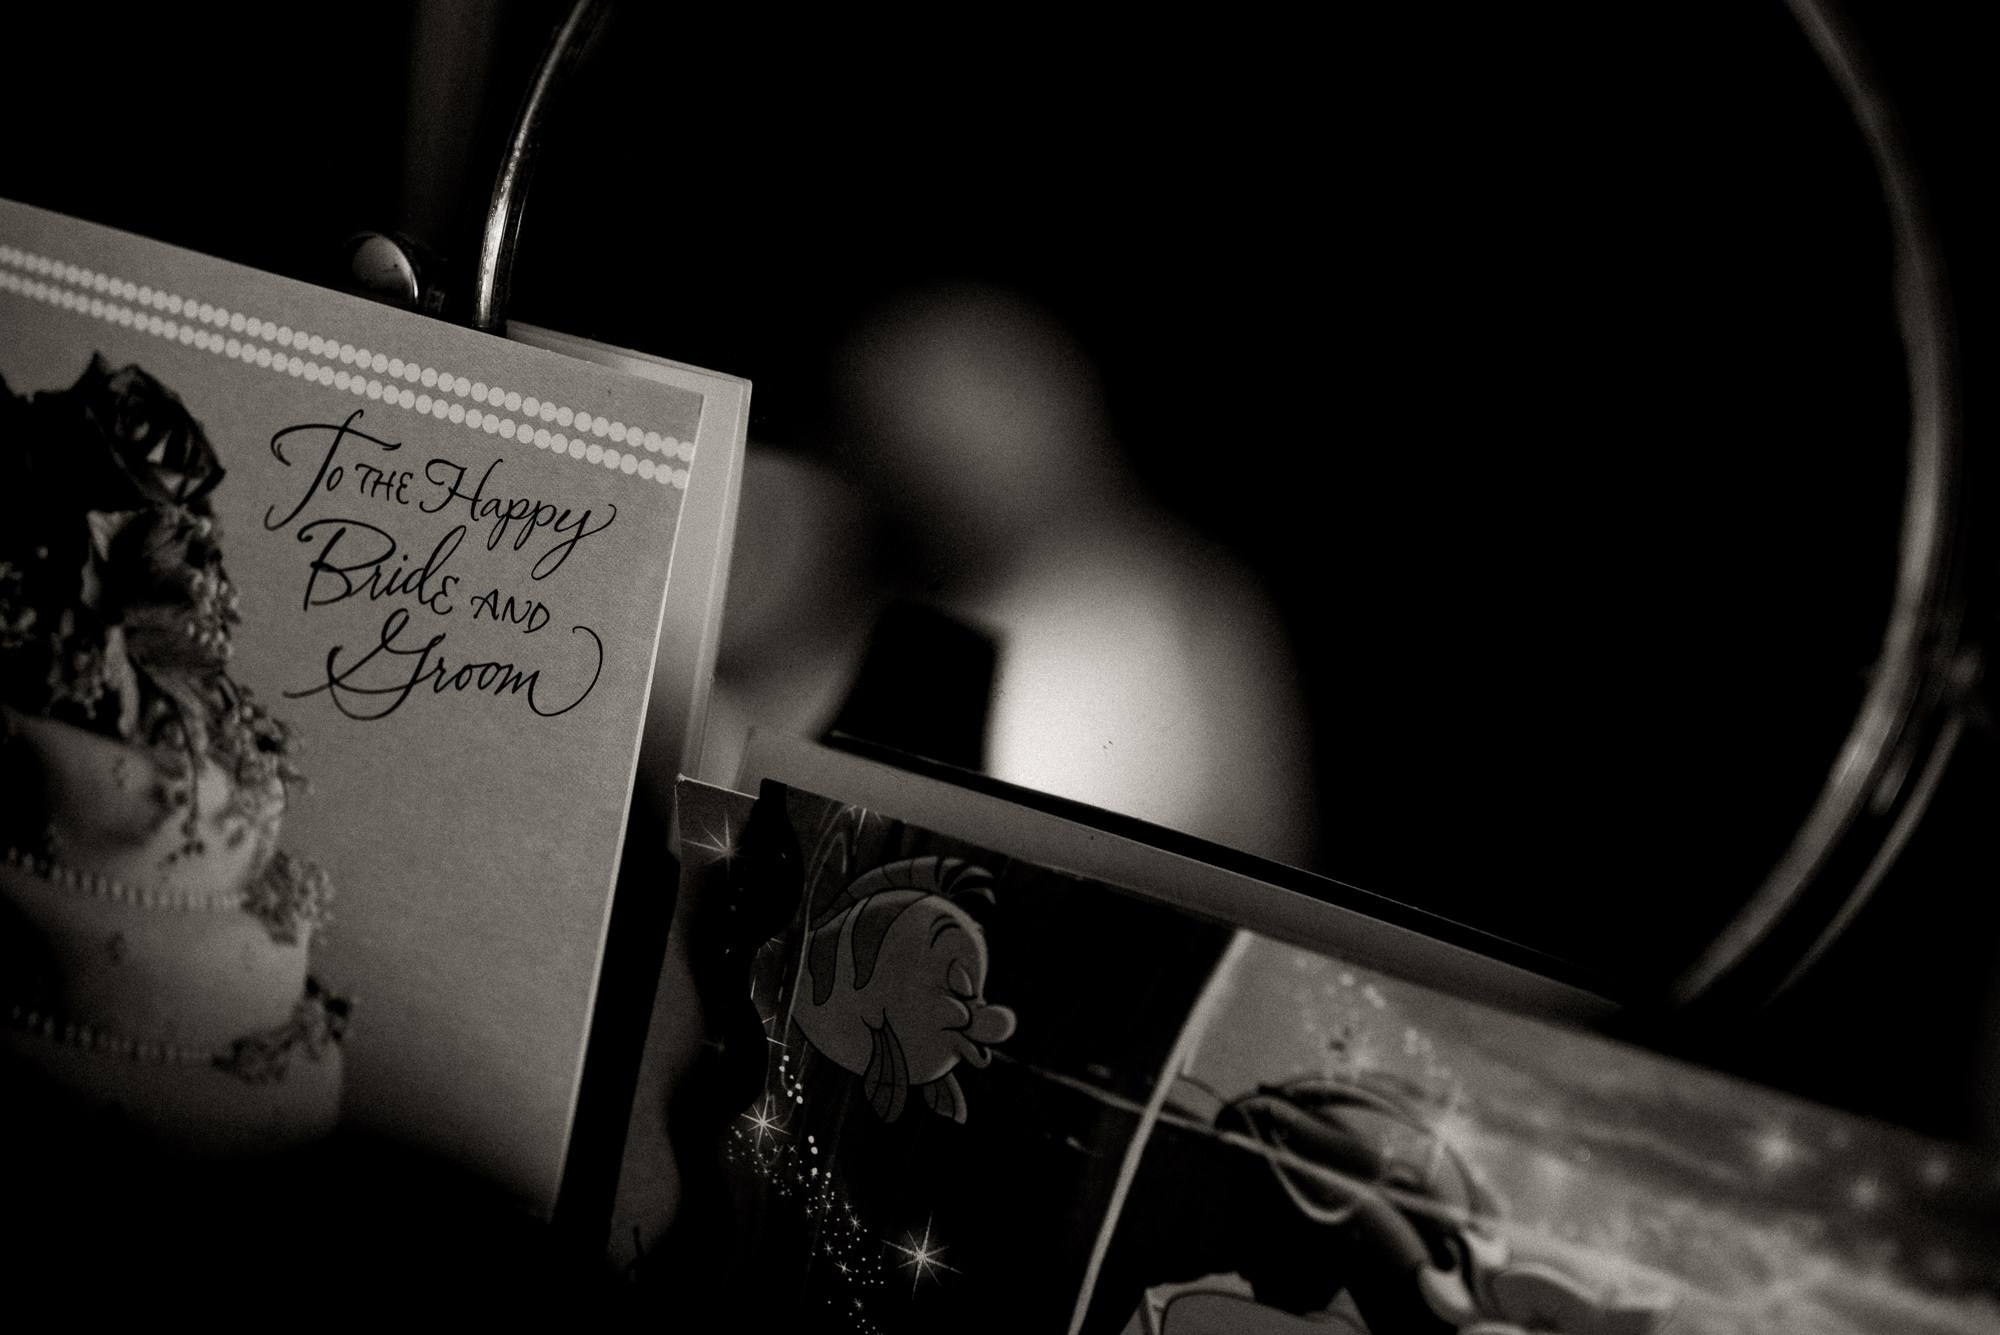 To the Happy
Bride and
Groom